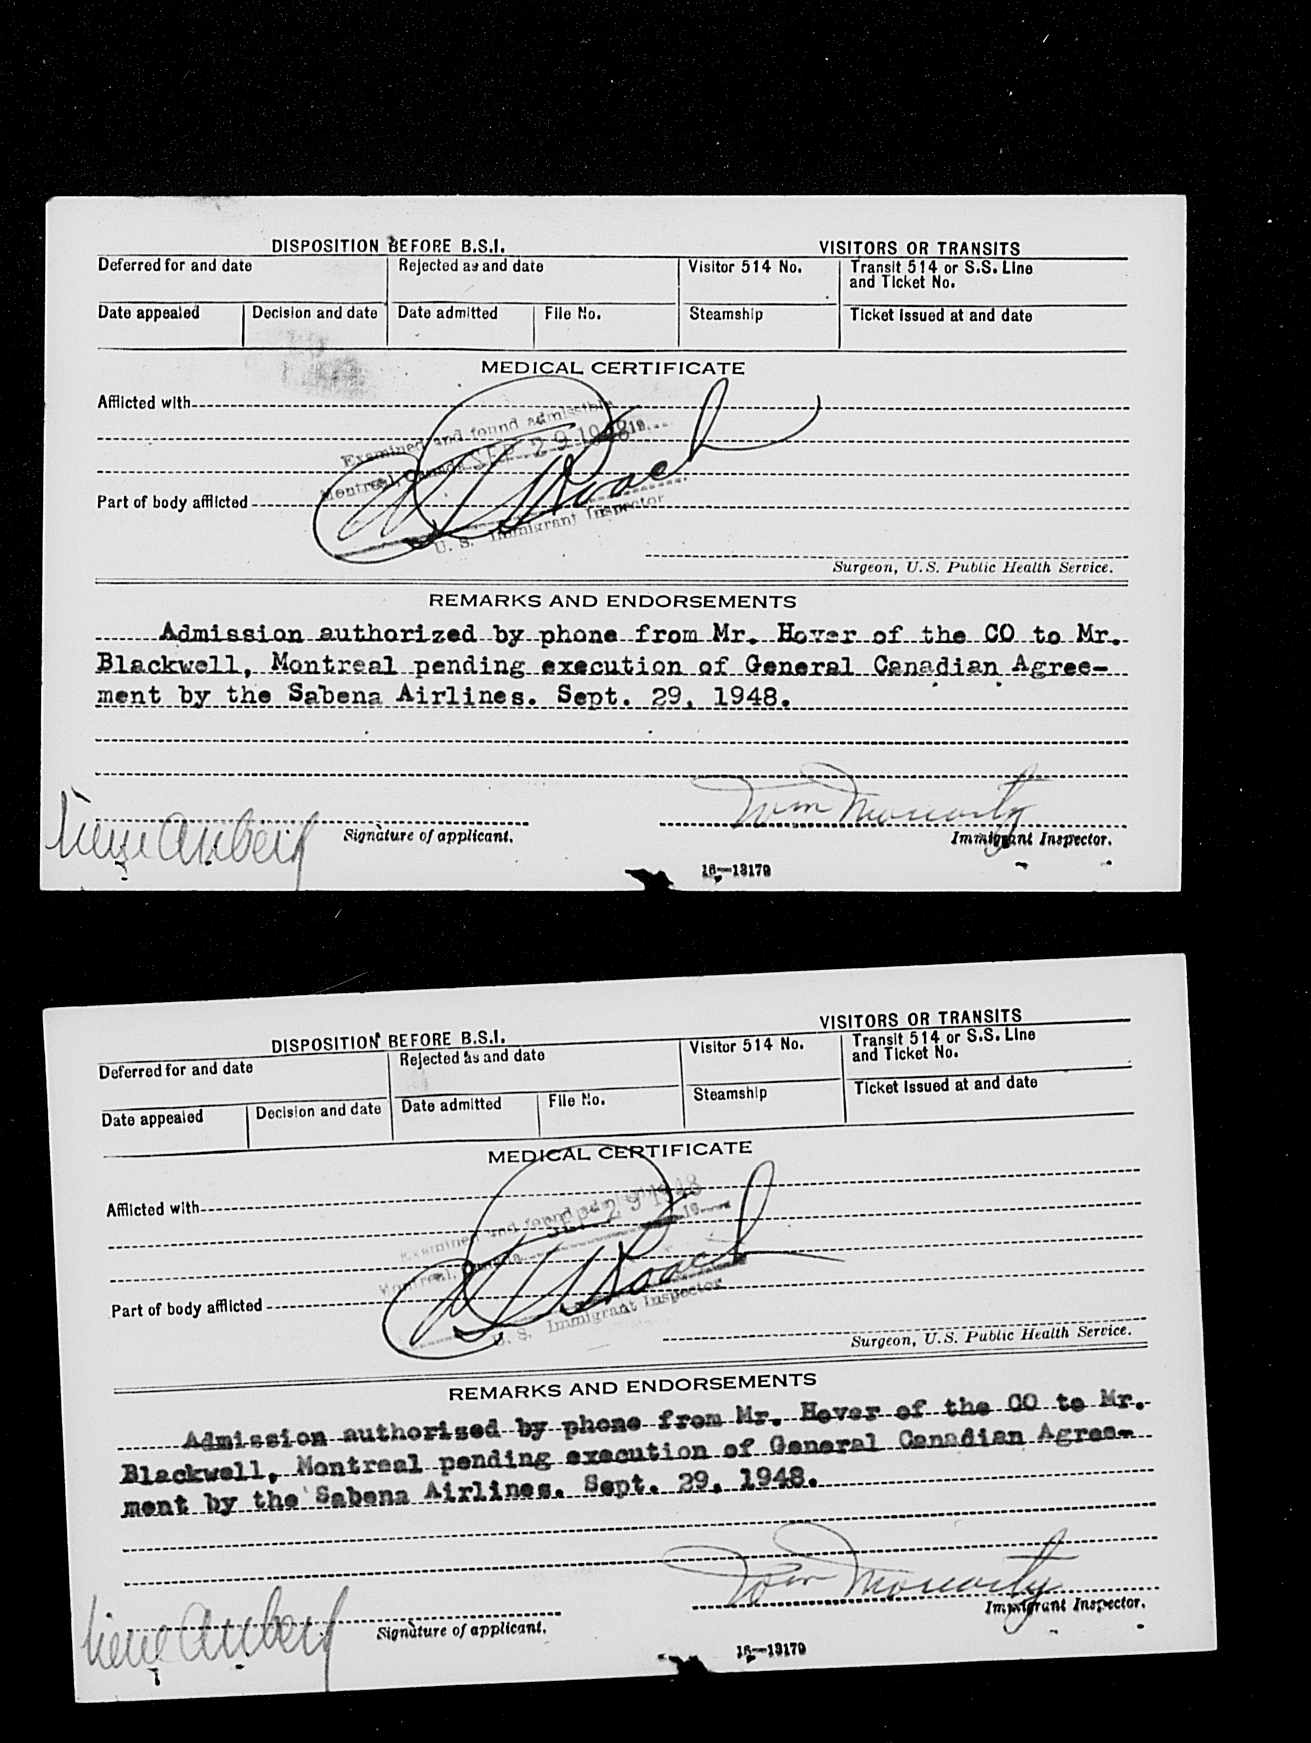 DISPOSITION BEFORE B.S.I. VISITORS OR TRANSITS
Deferred for and date Rejected as and date Visitor 514 No. Transit 514 or S.S. Line
and Ticket No.
Date appealed Decision and date Date admitted File No. Steamship Ticket issued at and date
MEDICAL CERTIFICATE
Afflicted with
Examined and found admissible
Montreal, Canada SEP 29 1948 19
Part of body afflicted
U. S. Immigrant Inspector
Surgeon, U.S. Public Health Service.
REMARKS AND ENDORSEMENTS
Admission authorized by phone from Mr. Hover of the CO to Mr.
Blackwell, Montreal pending execution of General Canadian Agree-
ment by the Sabena Airlines. Sept. 29, 1948.
Wm Moriarty
Signature of applicant. Immigrant Inspector.
16—13179
DISPOSITION BEFORE B.S.I. VISITORS OR TRANSITS
Deferred for and date Rejected as and date Visitor 514 No. Transit 514 or S.S. Line
and Ticket No.
Date appealed Decision and date Date admitted File No. Steamship Ticket issued at and date
MEDICAL CERTIFICATE
Afflicted with
SEP 29 1948
Examined and found 19
Montreal, Canada
Part of body afflicted
U. S. Immigrant Inspector
Surgeon, U.S. Public Health Service.
REMARKS AND ENDORSEMENTS
Admission authorized by phone from Mr. Hover of the CO to Mr.
Blackwell, Montreal pending execution of General Canadian Agree-
ment by the Sabena Airlines. Sept. 29, 1948.
Wm Moriarty
Signature of applicant. Immigrant Inspector.
16—13179